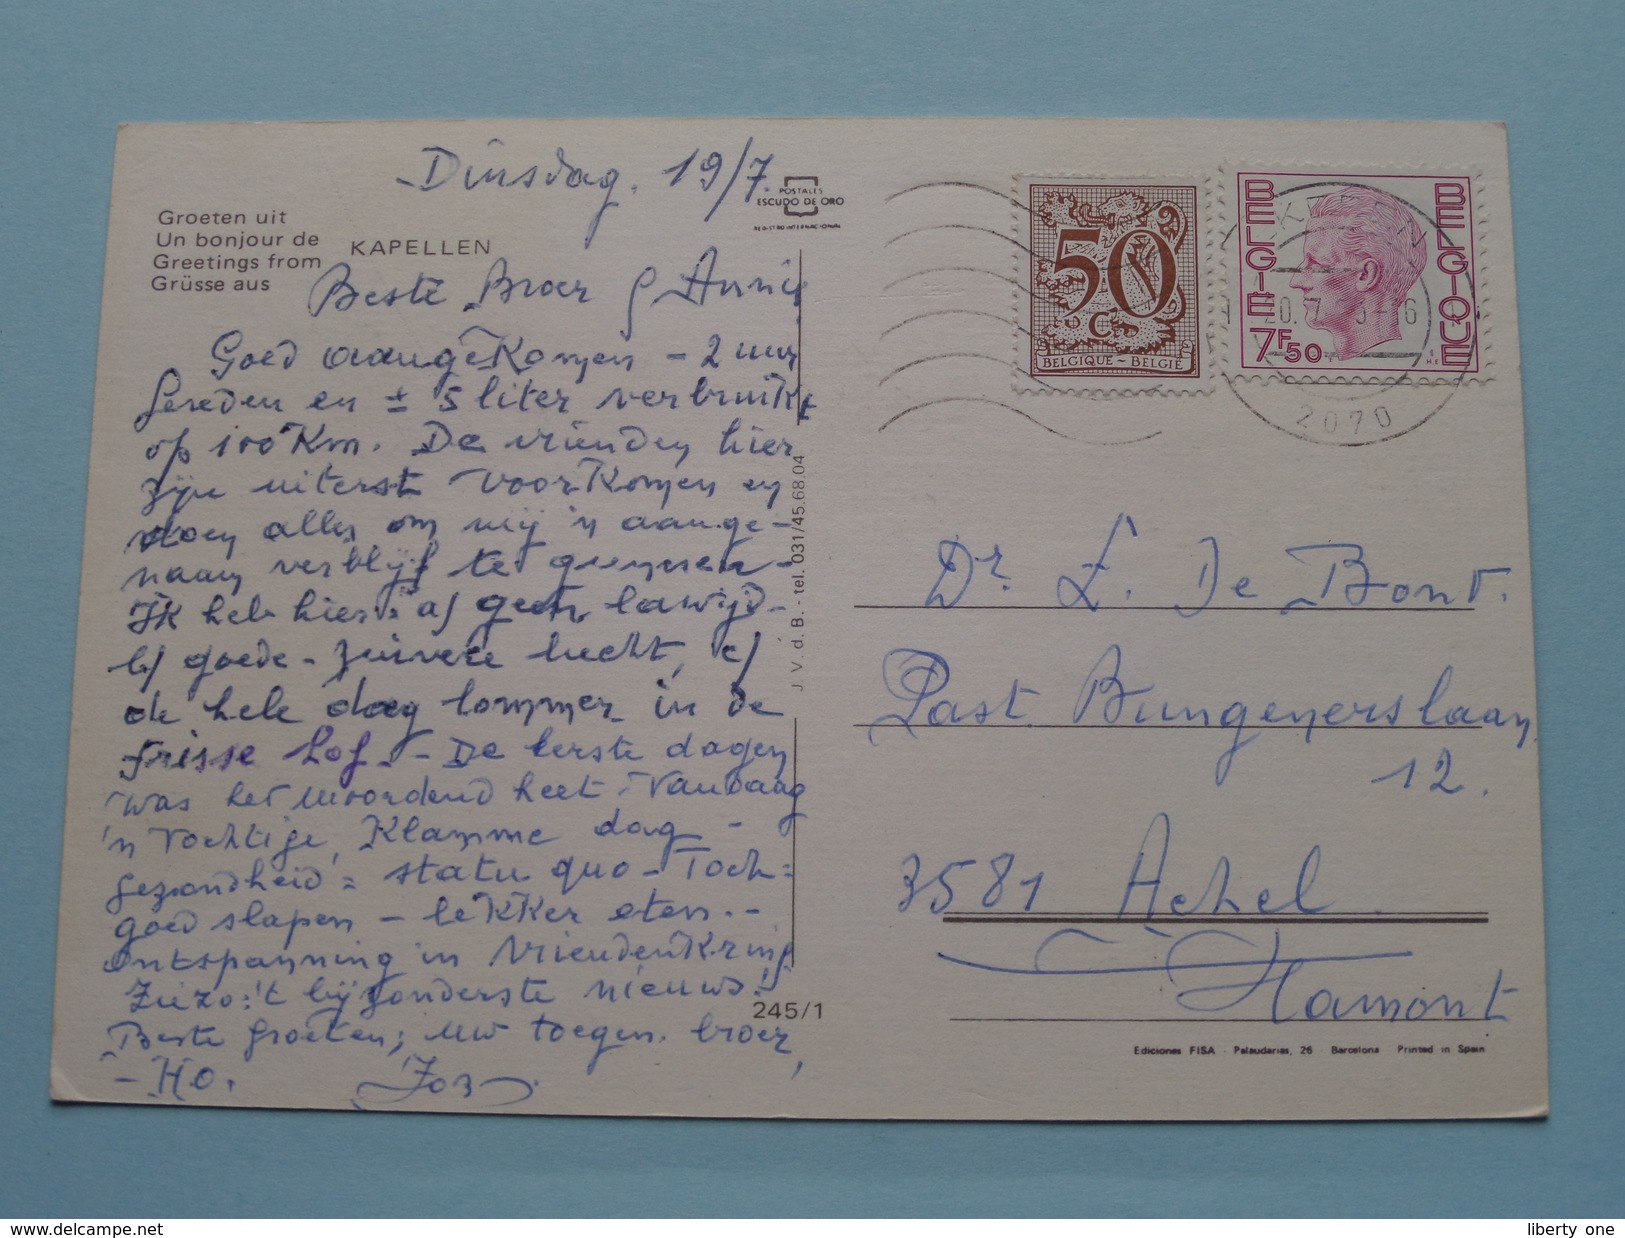 Dinsdag. 19/7
POSTALES
ESCUDO DE ORO
Groeten uit
Un bonjour de
Greetings from
Grüsse aus
KAPELLEN
Beste Broer & Annie
Goed aangekomen - 2 uur
gereden en ± 5 liter verbruikt
op 100 Km. De vrienden hier
zijn uiterst voorkomen en
doen alles om mij 'n aange-
naam verblijf te gunnen -
Ik heb hier: a/ geen lawijd -
b/ goede - zuivere lucht, c/
de hele dag lommer in de
frisse hof. - De eerste dagen
was het moordend heet - Vandaag
'n vochtige, klamme dag -
Gezondheid = statu quo - Toch =
goed slapen - lekker eten. -
Ontspanning in Vriendenkring
Ziezo: 't bijzonderste nieuws!
Beste groeten; uw toegen. broer,
- HO. Jos
J. V. d. B. - tel. 031/45.68.04
245/1
50
C
BELGIQUE - BELGIË
BELGIË
7F50
BELGIQUE
KAPELLEN
2070
Dr. L. De Bont.
Past. Bungenerslaan
12.
3581 Achel
Hamont
Ediciones FISA - Palaudarias, 26 - Barcelona - Printed in Spain
www.delcampe.net
liberty one